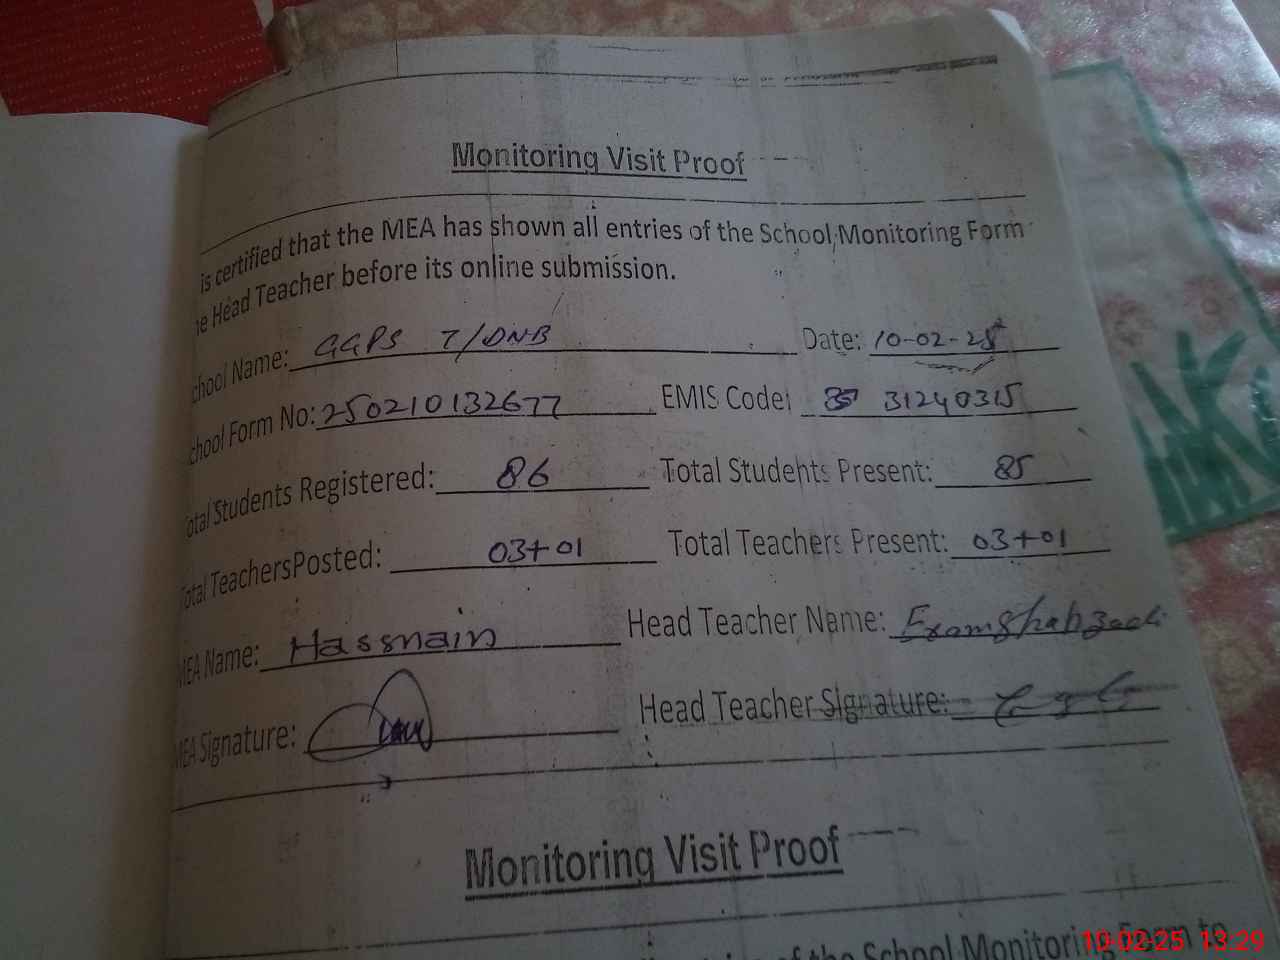 Monitoring Visit Proof
is certified that the MEA has shown all entries of the School Monitoring Form
Head Teacher before its online submission.
chool Name: GGPS 7/DNB Date: 10-02-25
chool Form No: 250210132677 EMIS Code: 31240315
otal Students Registered: 86 Total Students Present: 85
otal TeachersPosted: 03+01 Total Teachers Present: 03+01
MEA Name: Hassnain Head Teacher Name:
MEA Signature: Head Teacher Signature:
Monitoring Visit Proof
of the School Monitoring Form to
10-02-25 13:29